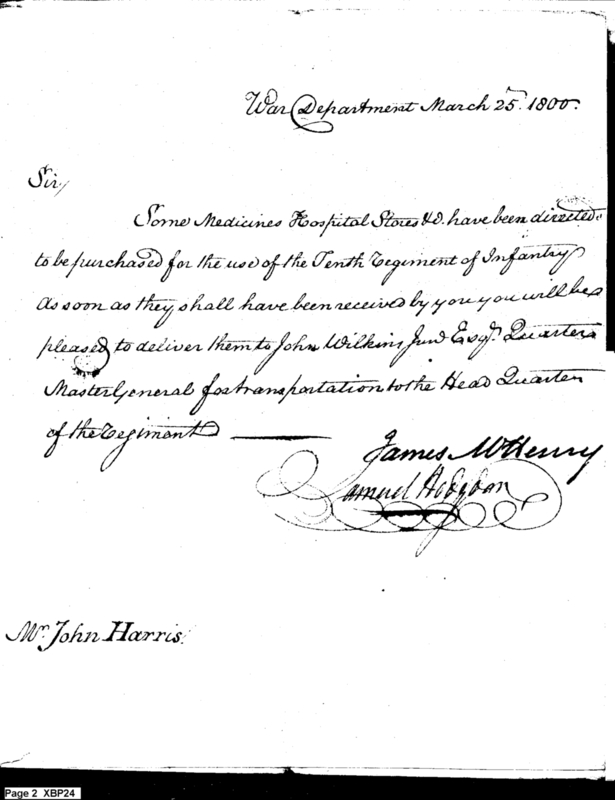 War Department March 25th. 1800.
Sir,
Some Medicines Hospital Stores &c. have been directed
to be purchased for the use of the Tenth Regiment of Infantry
As soon as they shall have been received by you you will be
pleased to deliver them to John Wilkins Junr Esqr. Quarter
Master General for transportation to the Head Quarter
of the Regiment
James McHenry
Samuel Hodgdon
Mr. John Harris.
Page 2 XBP24